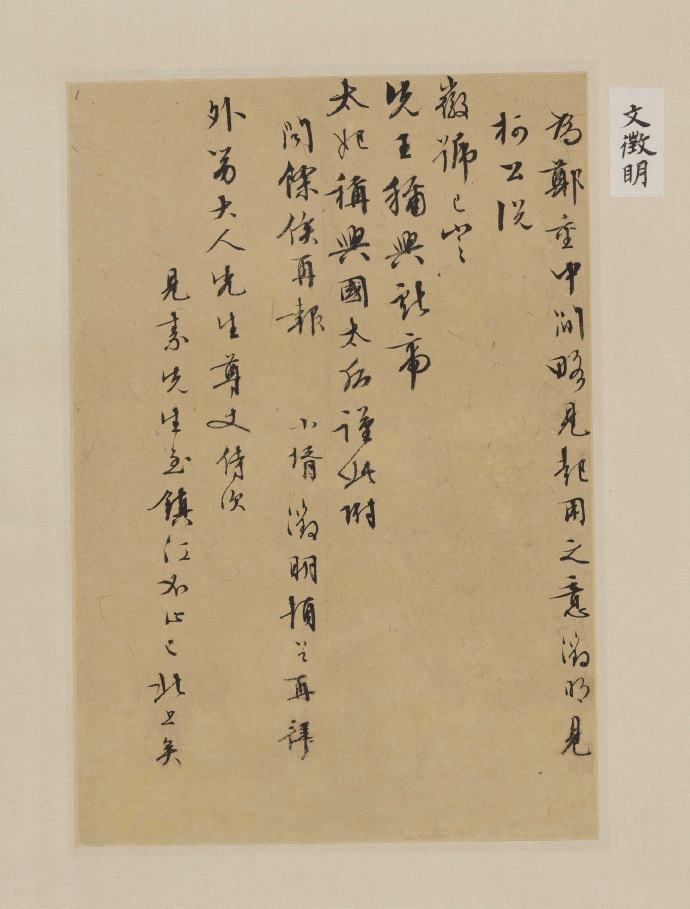 文徵明
為鄭重中間略見起用之意徵明見
柯公說
徽號已定
先王稱興獻帝
太妃稱興國太后謹此附
聞餘俟再報 小壻徵明頓首再拜
外舅大人先生尊丈侍次
見素先生至鎮江不止已北上矣